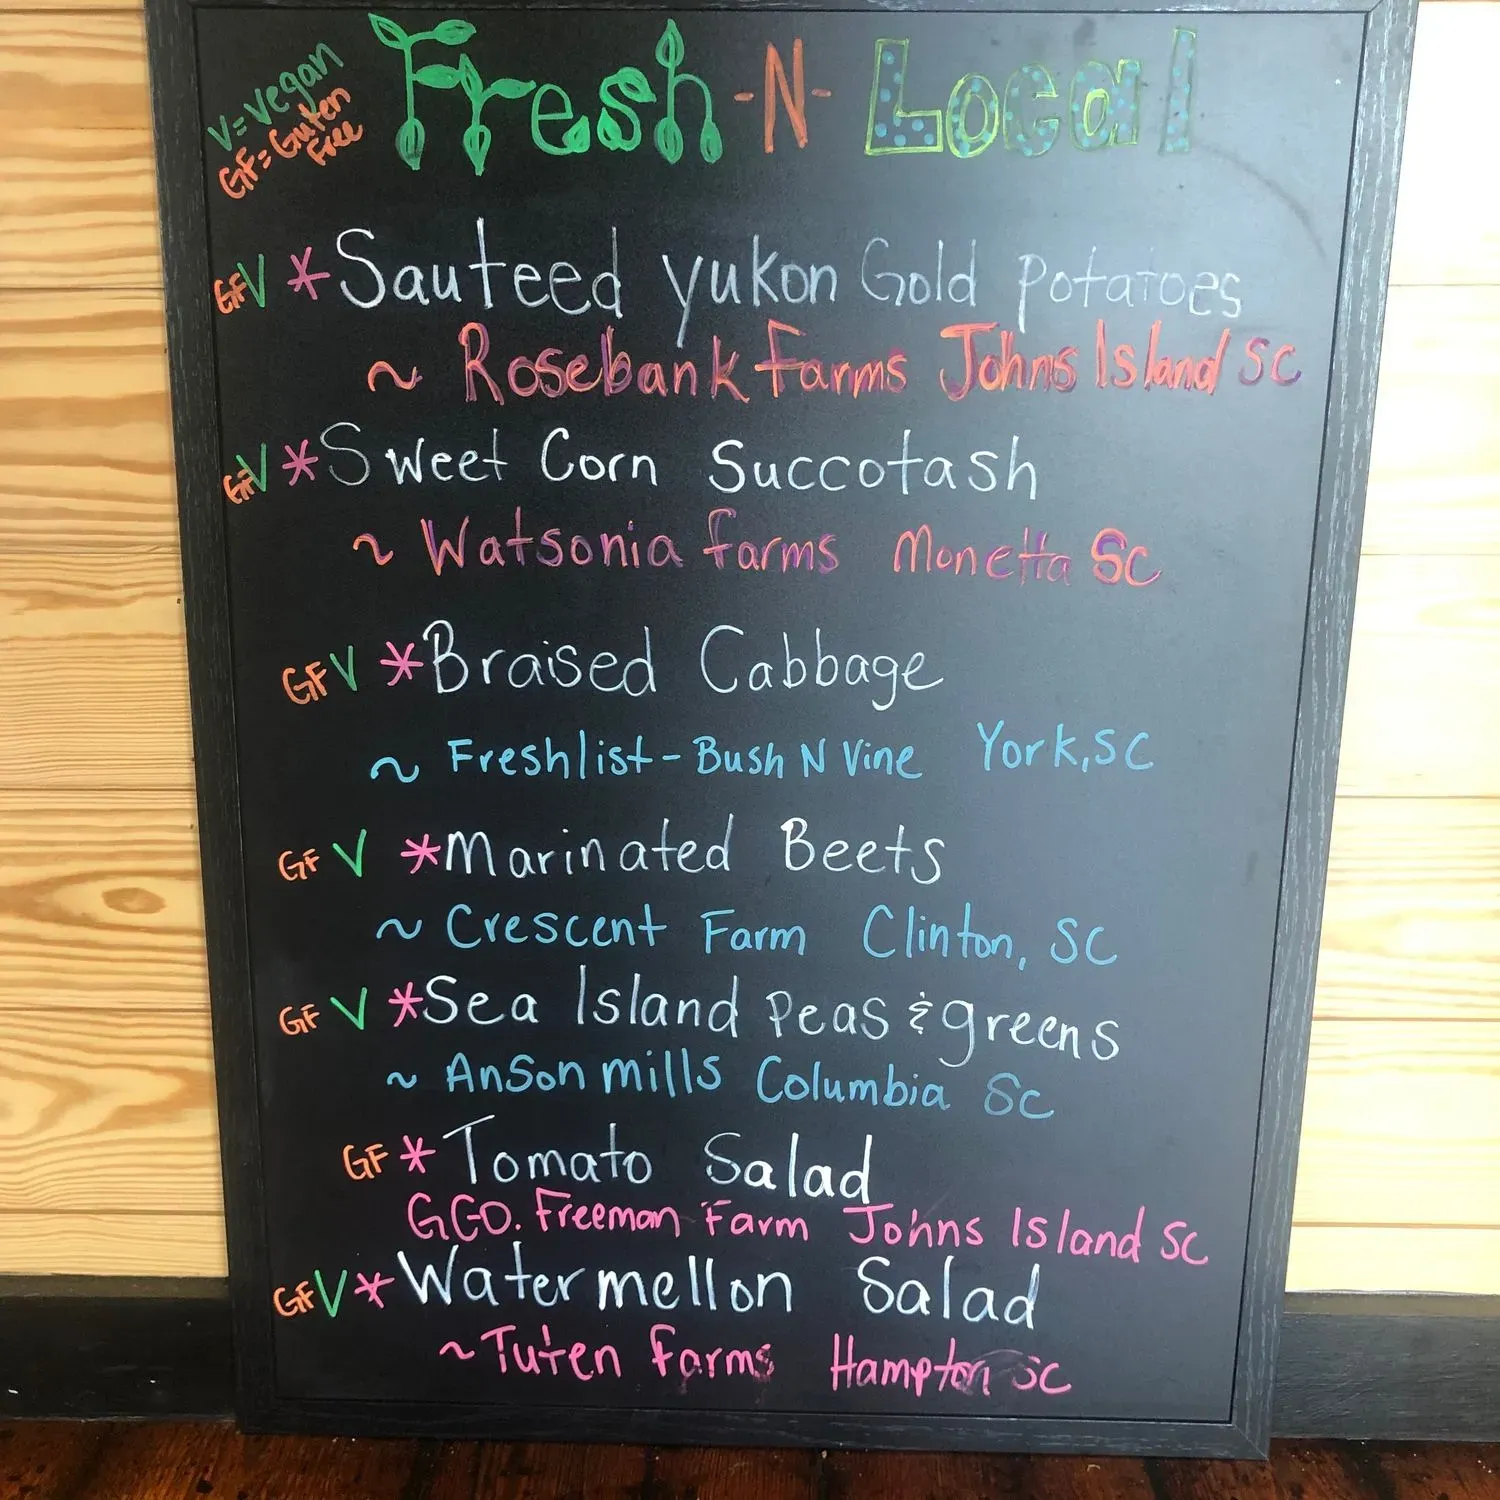 V=Vegan
GF=Guten
Free
Fresh-N-Local
GFV *Sauteed yukon Gold potatoes
~ Rosebank Farms Johns Island SC
GFV *Sweet Corn Succotash
~ Watsonia farms Monetta SC
GFV *Braised Cabbage
~ Freshlist-Bush N Vine York, SC
GF V *Marinated Beets
~ Crescent Farm Clinton, SC
GF V *Sea Island Peas & greens
~ Anson mills Columbia SC
GF *Tomato Salad
GGO. Freeman Farm Johns Island SC
GFV *Watermellon Salad
~Tuten farms Hampton SC